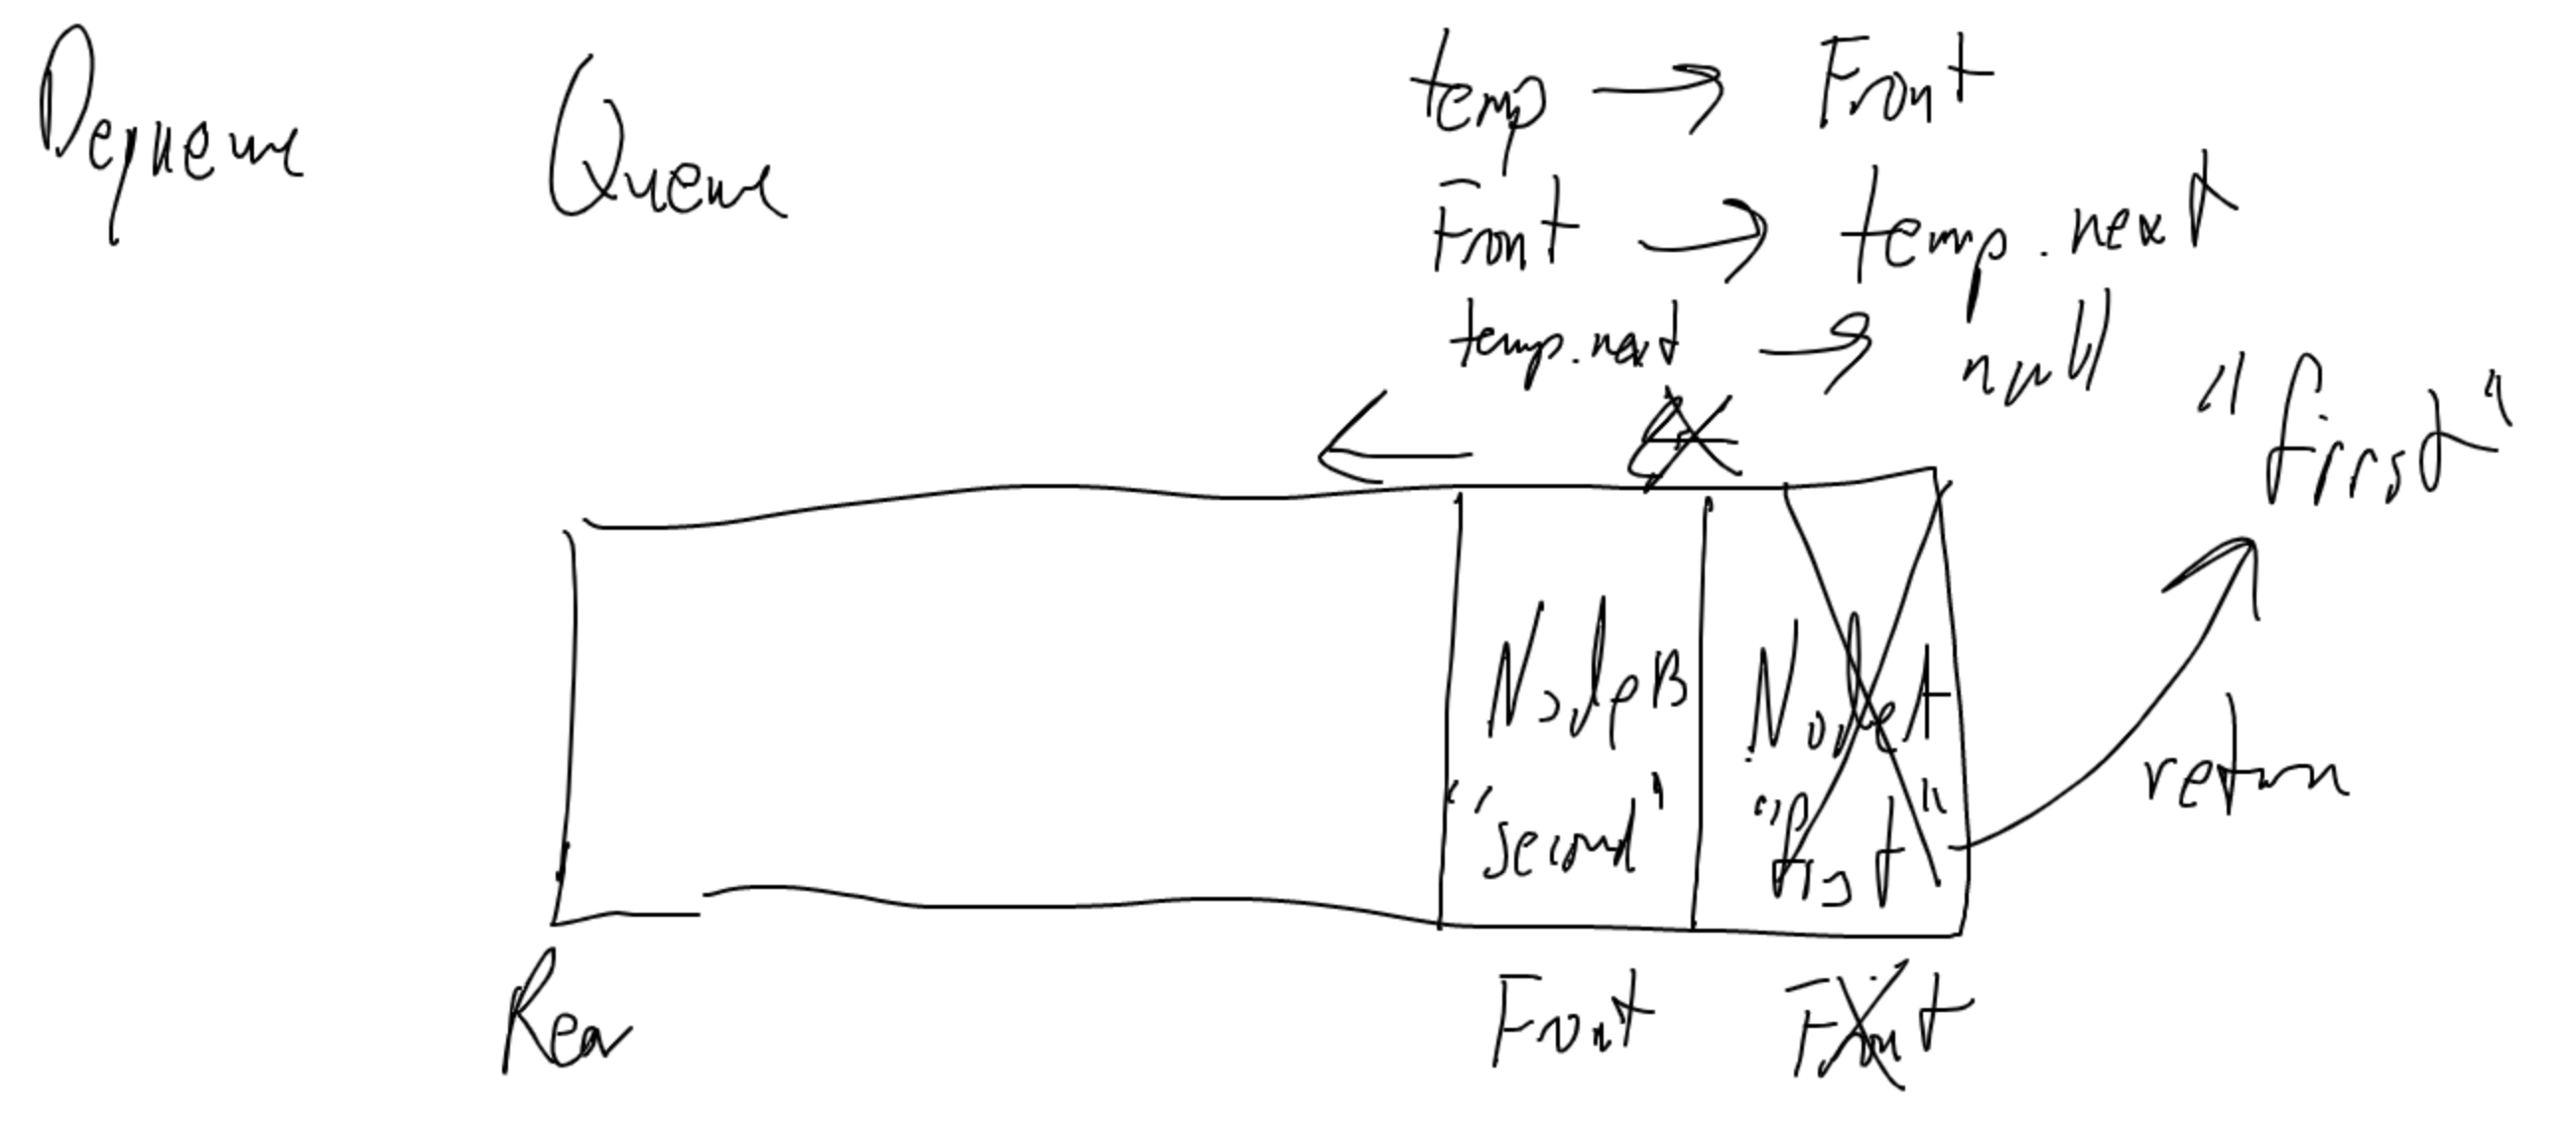 Dequeue
Queue
temp → Front
Front → temp.next
temp.next → null
"first"
NodeB
"second"
NodeA
"first"
return
Rear
Front
Front